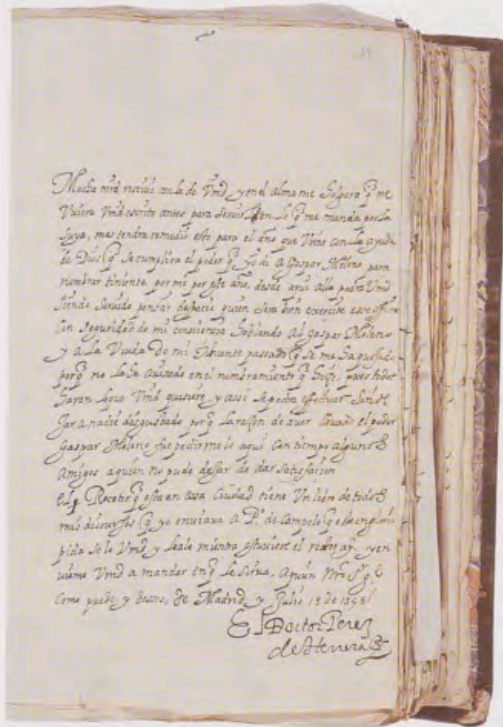 Mucha mrd recivi con la de Vmd, y en el alma me holgara q̃ me
Uviera Vmd escrito antes para servir en lo q̃ me manda por la
suya, mas tendra remedio esto para el año que viene con la ayuda
de Dios q̃ se cumplira el poder q̃ yo di a Gaspar Moleno para
nombrar tiniente por mi por este año, desde aqui alla podra Vmd
siendo servido pensar despacio quien sera bien exercite este officio
con seguridad de mi consciencia hablando al Gaspar Moleno
y a la Viuda de mi theniente pasado q̃ se me ha quexado
porq̃ no la han avisado en el nombramiento q̃ hize, pues todos
haran lo que Vmd quisiere y assi se podra efectuar sin de
jar a nadie desgustado porq̃ la razon de aver llevado el poder
Gaspar Moleno fue pedirmelo aqui con tiempo algunos
Amigos a quien no pude dejar de dar satisfaction
El Retor q̃ esta en essa Ciudad tiene Un libro de todos
mis discursos q̃ yo enviava a P.º de Campelo
pida sele Vmd y leale mientra y en
vieme Vmd a mandar en q̃ le sirva, a quien nro Sr g.e
Como puede y deseo, de Madrid y Julio 18 de 1598
El Doctor Perez
de Herrera